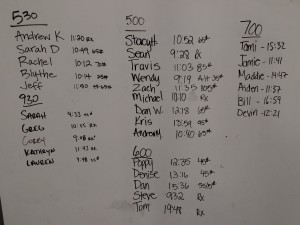 530
Andrew K 11:20 Rx
Sarah D 10:49 65#
Rachel 10:12
Blythe 10:14 25#
Jeff 11:50
930
SARAH 9:33
GREG 10:55 Rx
Corey 9:08
KATHRYN 11:43
LAUREN 9:48 55#
500
Stacy H 10:52 65#
Sean 9:28 Rx
Travis 11:03 85#
Wendy 9:19 35#
Zach 11:35 105#
Michael 10:10 Rx
Dan W. 12:18 65#
Kris 13:59 95#
Anthony 10:40 65#
600
Poppy 12:35 45#
Denise 13:16 45#
Dan 15:36 55/65#
Steve 9:32 Rx
Tom 19:48 Rx
700
Tami - 15:32
Jamie - 11:41
Maddie - 14:47
Aiden - 11:57
Bill - 16:59
Devin - 12:21